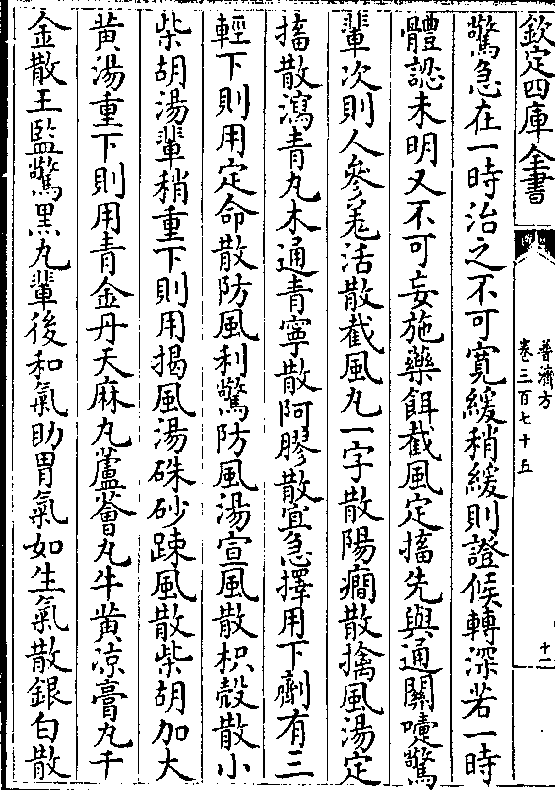 欽定四庫全書
普濟方
卷三百七十五
十一
驚急在一時治之不可寛緩稍緩則證候轉深若一時
體認未明又不可妄施藥餌截風定搐先與通關嚏驚
輩次則人參羗活散截風丸一字散陽癇散擒風湯定
搐散瀉青丸木通青寧散阿膠散宜急擇用下劑有三
輕下則用定命散防風利驚防風湯宣風散枳殻散小
柴胡湯輩稍重下則用揭風湯硃砂踈風散柴胡加大
黄湯重下則用青金丹天麻丸蘆薈丸牛黄凉膏丸千
金散王監驚黒丸輩後和氣助胃氣如生氣散銀白散